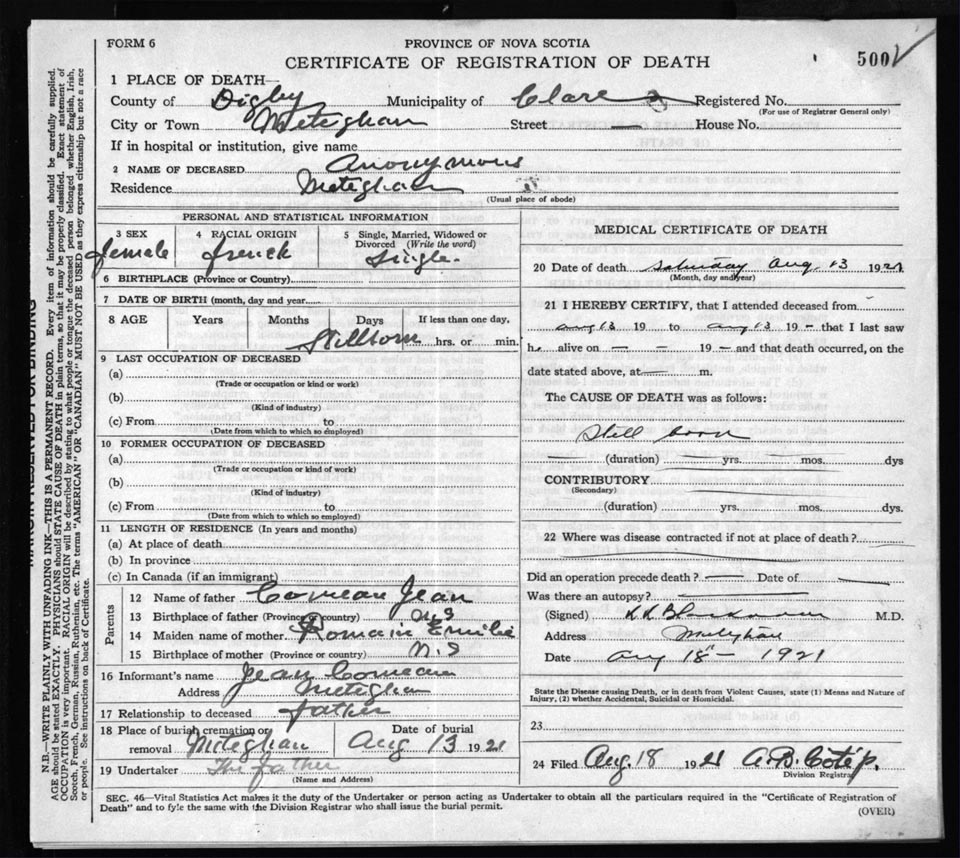 FORM 6
PROVINCE OF NOVA SCOTIA
CERTIFICATE OF REGISTRATION OF DEATH
500
1 PLACE OF DEATH—
County of Digby Municipality of Clare Registered No.
(For use of Registrar General only)
City or Town Meteghan Street — House No.
If in hospital or institution, give name
2 NAME OF DECEASED Anonymous
Residence Meteghan
(Usual place of abode)
PERSONAL AND STATISTICAL INFORMATION
3 SEX
female
4 RACIAL ORIGIN
french
5 Single, Married, Widowed or
Divorced (Write the word)
Single.
6 BIRTHPLACE (Province or Country)
7 DATE OF BIRTH (month, day and year)
8 AGE Years Months Days If less than one day,
Stillborn hrs. or min.
9 LAST OCCUPATION OF DECEASED
(a)
(Trade or occupation or kind or work)
(b)
(Kind of industry)
(c) From to
(Date from which to which so employed)
10 FORMER OCCUPATION OF DECEASED
(a)
(Trade or occupation or kind of work)
(b)
(Kind of industry)
(c) From to
(Date from which to which so employed)
11 LENGTH OF RESIDENCE (In years and months)
(a) At place of death
(b) In province
(c) In Canada (if an immigrant)
Parents
12 Name of father Comeau Jean
13 Birthplace of father (Province or country) N.S
14 Maiden name of mother Romain Emilie
15 Birthplace of mother (Province or country) N.S
16 Informant's name Jean Comeau
Address Meteghan
17 Relationship to deceased father
18 Place of burial cremation or
removal Meteghan
Date of burial
Aug 13 1921
19 Undertaker The father
(Name and Address)
MEDICAL CERTIFICATE OF DEATH
20 Date of death Saturday Aug. 13 1921
(Month, day and year)
21 I HEREBY CERTIFY, that I attended deceased from
Aug 13 19 to Aug 13 19 — that I last saw
h alive on — — 19 — and that death occurred, on the
date stated above, at — m.
The CAUSE OF DEATH was as follows:
Still born
(duration) yrs. mos. dys
CONTRIBUTORY
(Secondary)
(duration) yrs. mos. dys.
22 Where was disease contracted if not at place of death?
Did an operation precede death? — Date of —
Was there an autopsy? —
(Signed) M.D.
Address Meteghan
Date Aug 18th - 1921
State the Disease causing Death, or in death from Violent Causes, state (1) Means and Nature of
Injury, (2) whether Accidental, Suicidal or Homicidal.
23
24 Filed Aug. 18 1921 A.B. Coté p.
Division Registrar
SEC. 46—Vital Statistics Act makes it the duty of the Undertaker or person acting as Undertaker to obtain all the particulars required in the "Certificate of Registration of
Death" and to file the same with the Division Registrar who shall issue the burial permit.
(OVER)
MARGIN RESERVED FOR BINDING
N.B.—WRITE PLAINLY WITH UNFADING INK—THIS IS A PERMANENT RECORD. Every item of information should be carefully supplied.
AGE should be stated EXACTLY. PHYSICIANS should STATE CAUSE OF DEATH in plain terms, so that it may be properly classified. Exact statement of
OCCUPATION is very important. RACIAL ORIGIN will be described by stating to what people or tongue the deceased person belonged whether English, Irish,
Scotch, French, German, Russian, Ruthenian, etc. The terms "AMERICAN" OR "CANADIAN" MUST NOT BE USED as they express citizenship but not a race
or people. See instructions on back of Certificate.